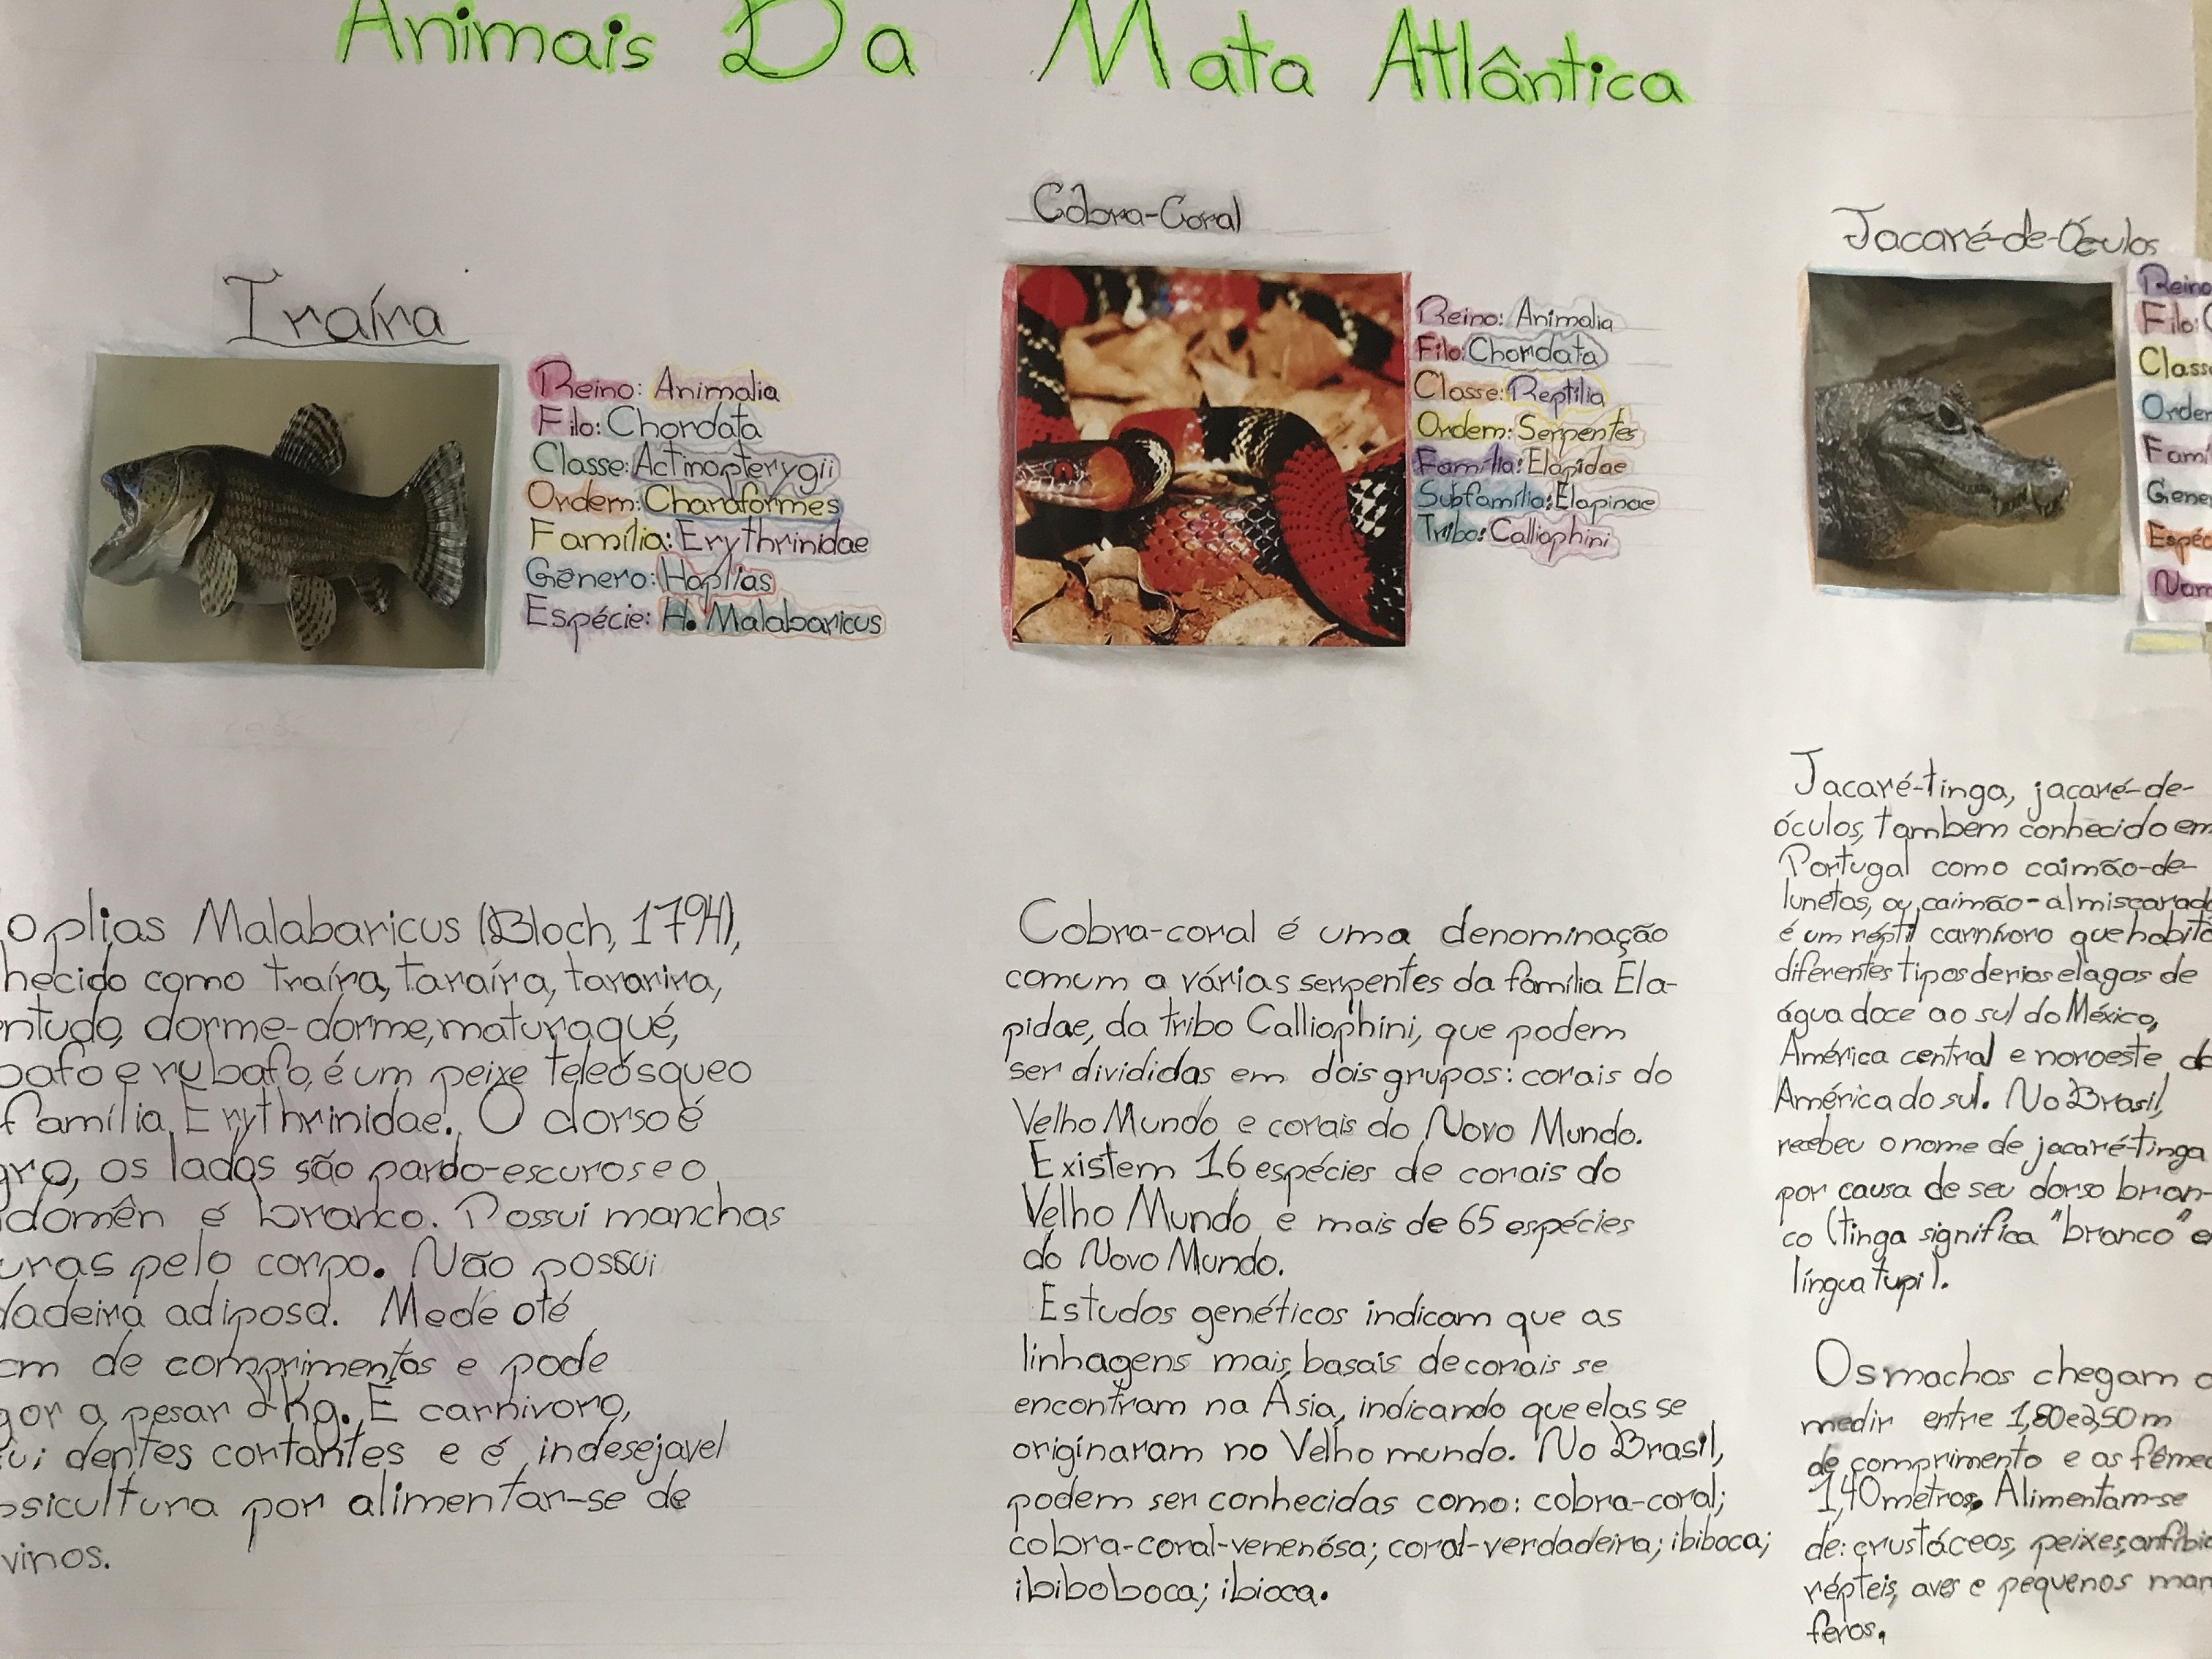 Animais Da Mata Atlântica
Traíra
Reino: Animalia
Filo: Chordata
Classe: Actinopterygii
Ordem: Charaformes
Família: Erythrinidae
Gênero: Hoplias
Espécie: H. Malabaricus
oplias Malabaricus (Bloch, 1794),
hecido como traíra, taraíra, tararira,
ntudo, dorme-dorme, maturaqué,
bafo e rubafo, é um peixe teleósqueo
família Erythrinidae. O dorso é
gro, os lados são pardo-escuros e o
domên é branco. Possui manchas
uras pelo corpo. Não possui
dadeira adiposa. Mede até
cm de comprimentos e pode
gar a pesar 2Kg. É carnívoro,
ui dentes cortantes e é indesejavel
sicultura por alimentar-se de
vinos.
Cobra-Coral
Reino: Animalia
Filo: Chordata
Classe: Reptilia
Ordem: Serpentes
Família: Elapidae
Subfamília: Elapinae
Tribo: Calliophini
Cobra-coral é uma denominação
comum a várias serpentes da família Ela-
pidae, da tribo Calliophini, que podem
ser divididas em dois grupos: corais do
Velho Mundo e corais do Novo Mundo.
Existem 16 espécies de corais do
Velho Mundo e mais de 65 espécies
do Novo Mundo.
Estudos genéticos indicam que as
linhagens mais basais de corais se
encontram na Ásia, indicando que elas se
originaram no Velho mundo. No Brasil,
podem ser conhecidas como: cobra-coral;
cobra-coral-venenósa; coral-verdadeira; ibiboca;
ibiboboca; ibioca.
Jacaré-de-Óculos
Reino
Filo: C
Classe
Orden
Famí
Gene
Espéc
Nom
Jacaré-tinga, jacaré-de-
óculos, tambem conhecido em
Portugal como caimão-de-
lunetos, ou caimão-almiscarado
é um réptil carnívoro que habita
diferentes tipos de rios e lagos de
água doce ao sul do México,
América central e noroeste da
América do sul. No Brasil,
recebeu o nome de jacaré-tinga
por causa de seu dorso bran-
co (tinga significa "branco" e
língua tupi).
Os machos chegam a
medir entre 1,80 e 2,50 m
de comprimento e as fêmea
1,40 metros. Alimentam-se
de: crustáceos, peixes, anfíbio
répteis, aves e pequenos mam
feros.